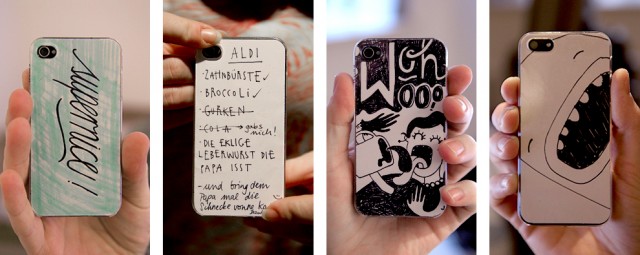 supernice!
ALDI
- ZAHNBÜRSTE ✓
- BROCCOLI ✓
- GURKEN
- COLA → gabs nich!
- DIE EKLIGE
LEBERWURST DIE
PAPA ISST
- und bring dem
Papa mal die
Schnecke vonna
Woh
Wooo